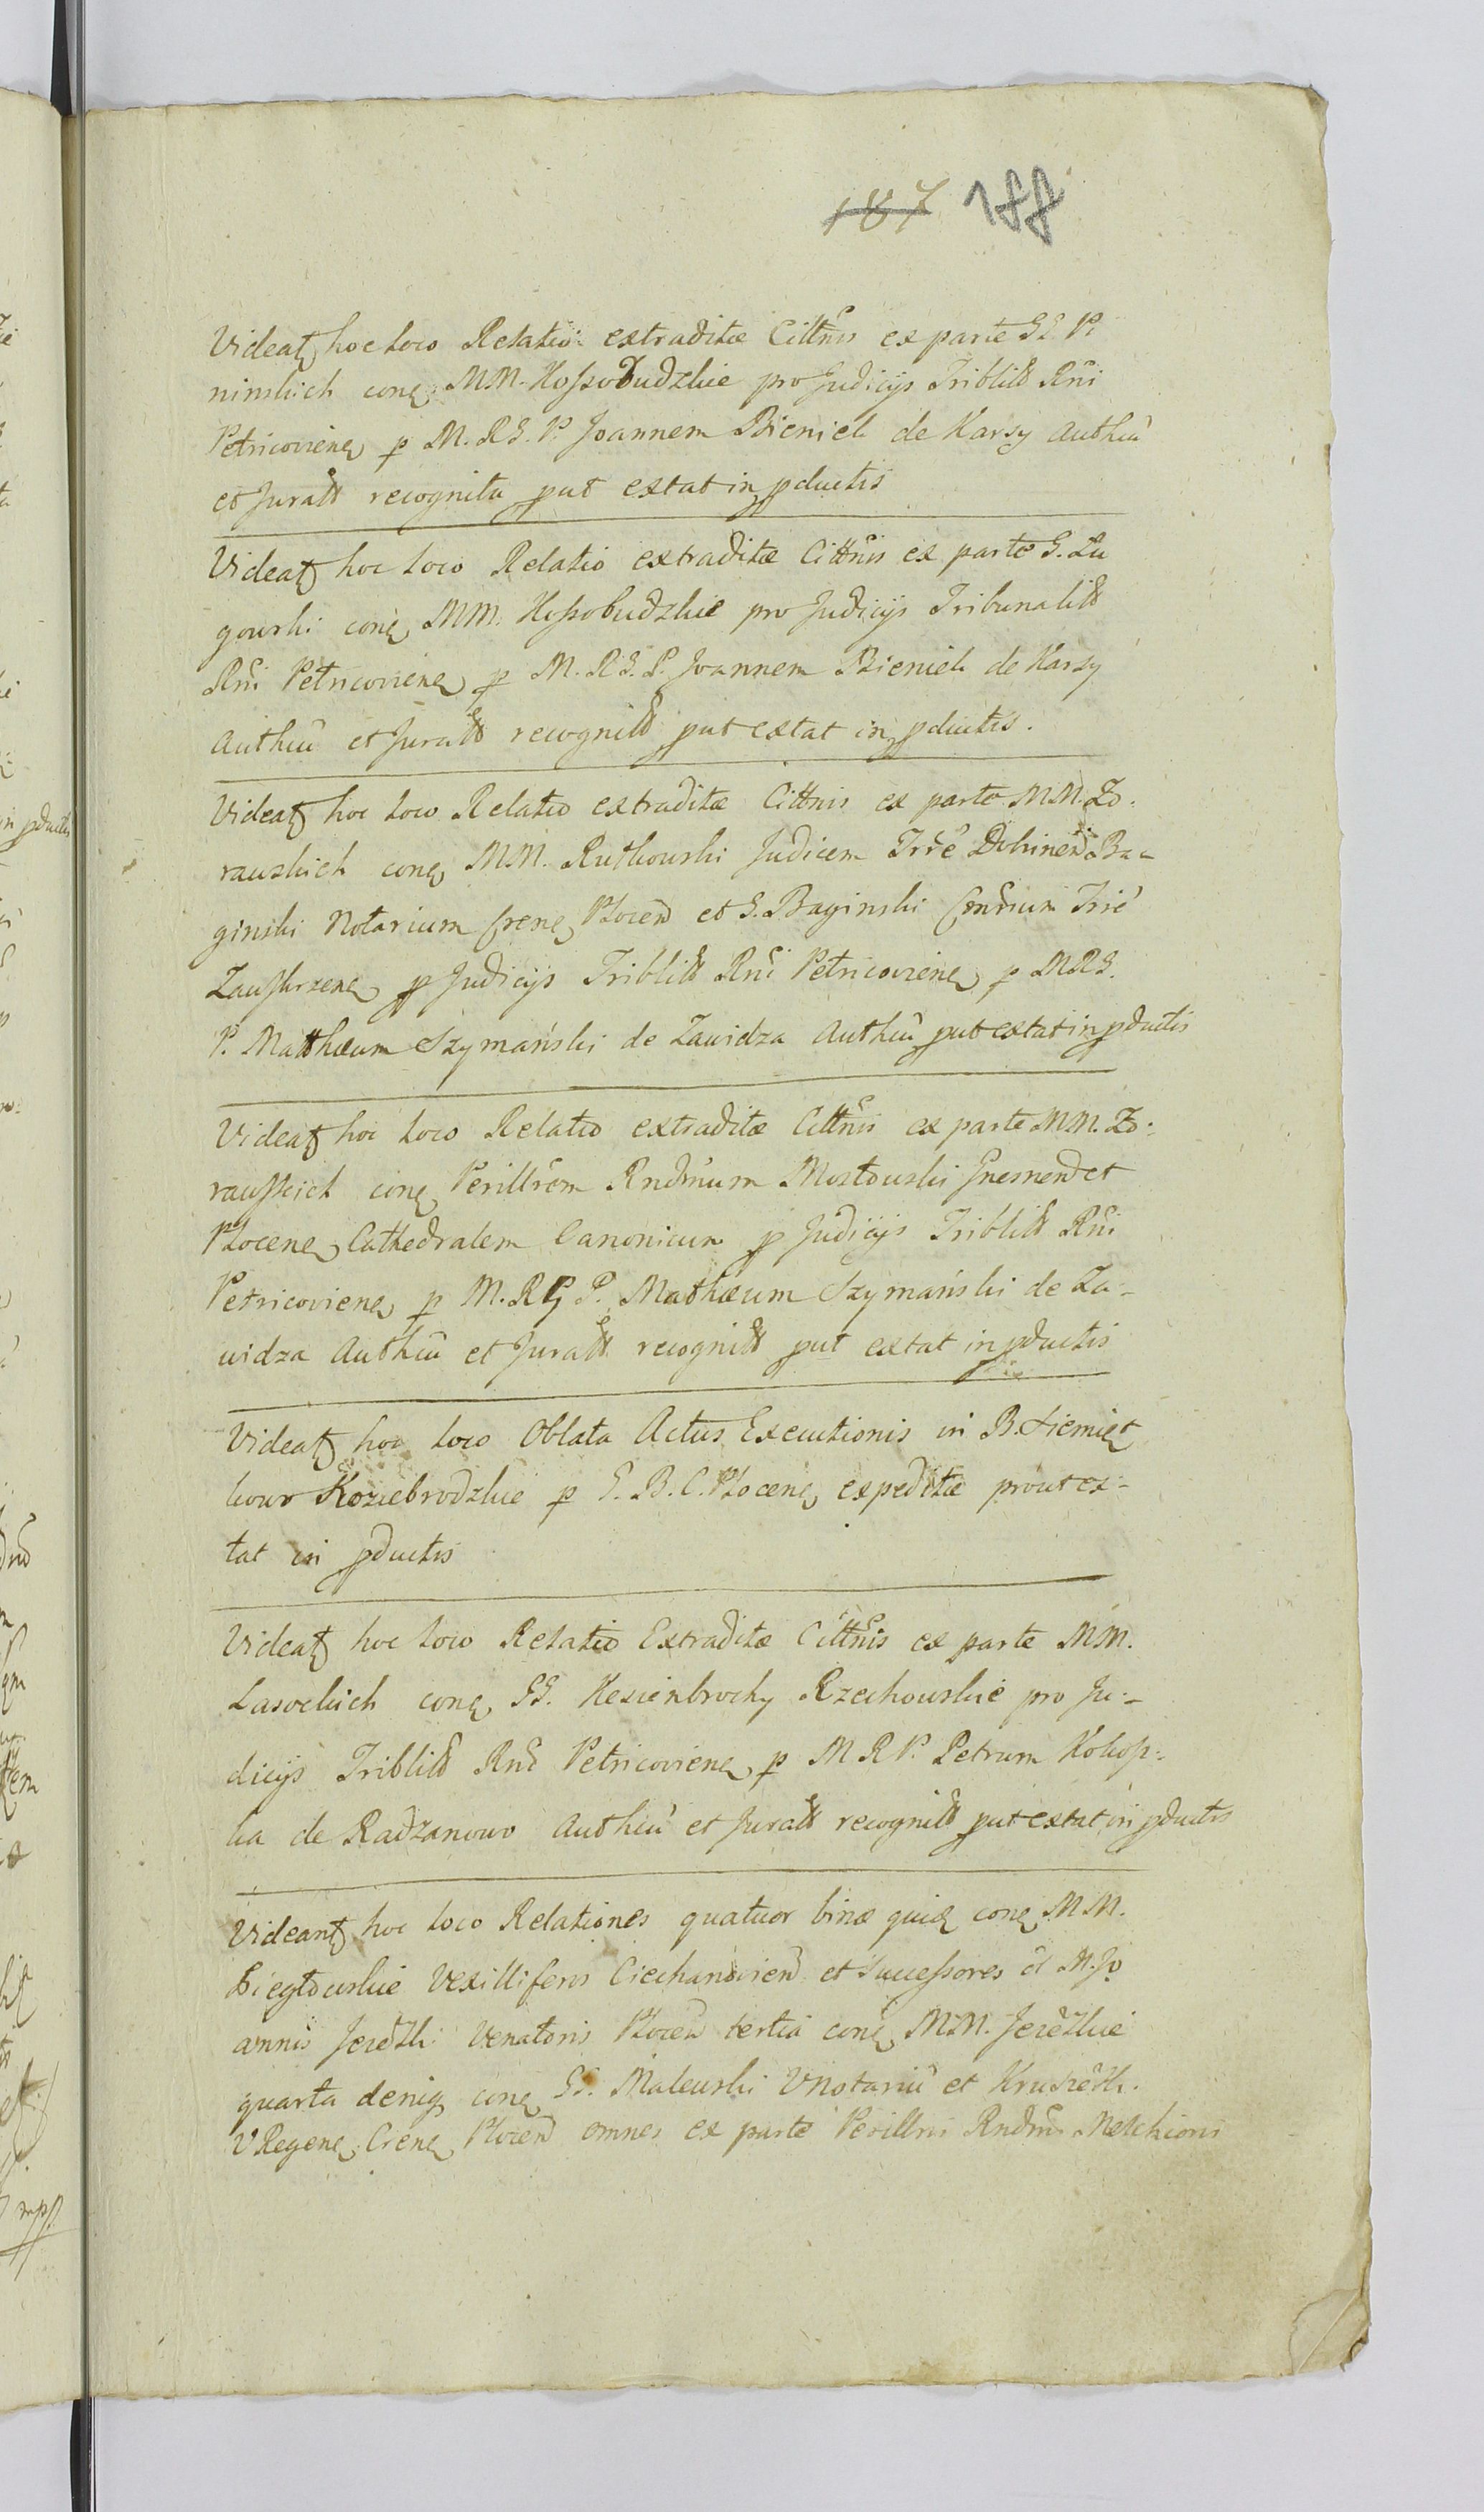 187 188
Videatʒ hoc loco Relatio extraditæ Cittnis ex parte GG. P.
ninskich conꝗ MM. Kossobudzkie pro Judicijs Triblibꝰ Rni
Petricovienꝗ p M. R G. P. Joannem Bieniek de Karsy Authcũ
et Juratt recognita put extat in pductis
Videatʒ hoc loco Relatio extraditæ Cittnis ex parte G. Zu
gowski conꝗ MM. Kossobudzkie pro Judicijs Tribunalibꝰ
Rni Petricovienꝗ p M. R G. P. Joannem Bieniek de Karsy
Authcũ et Juratt recognit put extat in pductis.
Videatʒ hoc loco Relatio extraditæ Cittnis ex parte MM. Zo.
rawskich conꝗ MM. Rutkowski Judicem Trre Dobrinen Ba-
ginski Notarium Crenꝗ Plocen et G. Baginski Trre
Zawskrzenꝗ p Judicijs Triblibꝰ Rni Petricovienꝗ p M R G.
P. Matthæum Szymański de Zawidza Authcũ put extat in pductis
Videatʒ hoc loco Relatio extraditæ Cittnis ex parte MM. Zo.
rawskich conꝗ Perillrem Rndmum Mostowski Gnesnen et
Plocenꝗ Cathedralem Canonicum p Judicijs Triblibꝰ Rni
Petricovienꝗ p M. R G P. Mathæum Szymański de Za-
widza Authcũ et Juratt recognit put extat in pductis
Videatʒ hoc loco Oblata Actus Executionis in B. Siemiąt
kowo Koziebrodzkie p G. B. C. Plocenꝗ expeditæ prout ex-
tat in pductis
Videatʒ hoc loco Relatio Extraditæ Cittnis ex parte MM.
Lasockich conꝗ GG. Rzechowskie pro Ju-
dicijs Triblibꝰ Rni Petricovienꝗ p M R P. Petrum Kokosz-
ka de Radzanowo Authcũ et Juratt recognit put extat in pductis
Videantʒ hoc loco Relationes quatuor binæ quidꝫ conꝗ MM.
Vexilliferis Ciechanovien et Successores ol M. Jo
annis Jeżewski Venatoris Plocen tertia conꝗ MM. Jeżewskie
quarta deniqꝫ conꝗ GG. Malewski VNotariũ et
VRegenꝗ Crenꝗ Plocen omnes ex parte Perillris Rndmi Melchioris